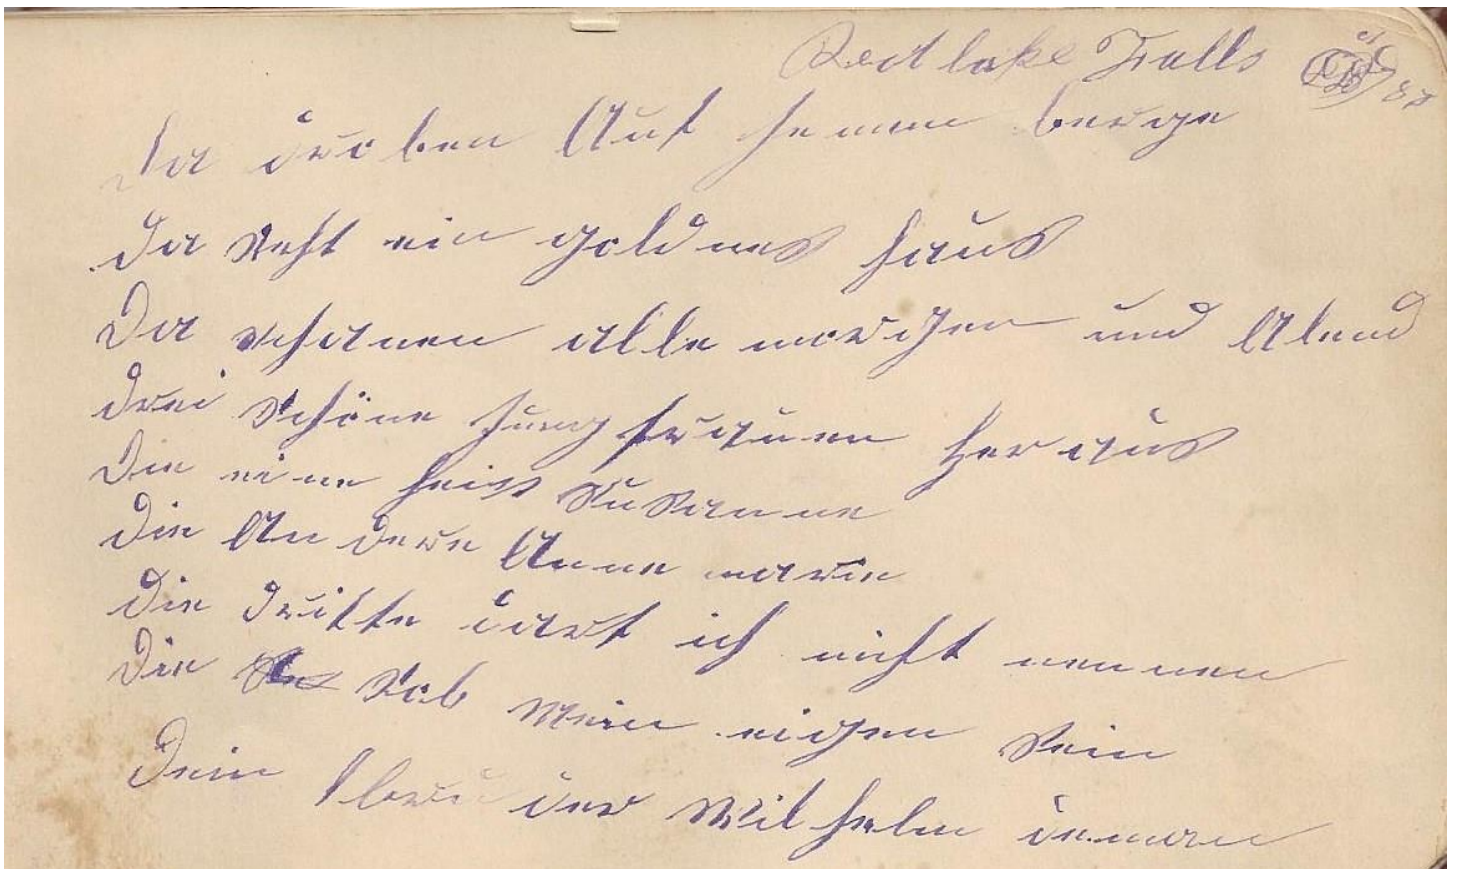 Red lake Falls 87
Da droben Auf jenem berge
Da steht ein goldnes haus
Da schauen alle morgen und Abend
drei schöne Jungfrauen heraus
Die eine heist Susanne
die An dere Anne marie
die dritte darf ich nicht nennen
die Sol mein eigen sein
Dein bruder Wilhelm